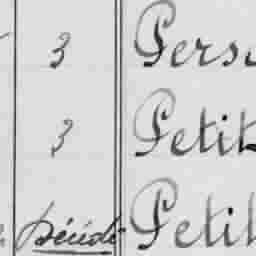 3 Pers
3 Petit
Décédé Petit